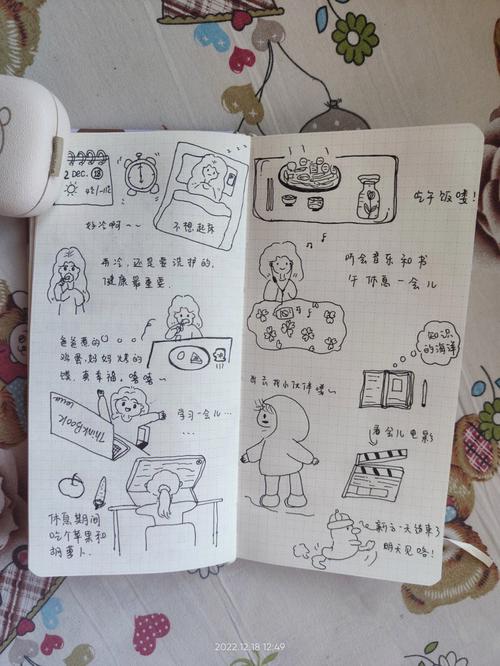 2 DEC. 18
4℃/-11℃
好冷啊~~
不想起床
再冷,还是要洗护的,
健康最重要.
爸爸煮的
鸡蛋,妈妈烤的
馍,真幸福,嘻嘻~
ThinkBook
Lenovo
学习一会儿...
...
休息期间
吃个苹果和
胡萝卜.
吃午饭喽!
听会音乐和书
午休息一会儿
知识
的海洋
去找小伙伴喽~
看会儿电影
新的一天结束了
明天见咯!
2022.12.18 12:49